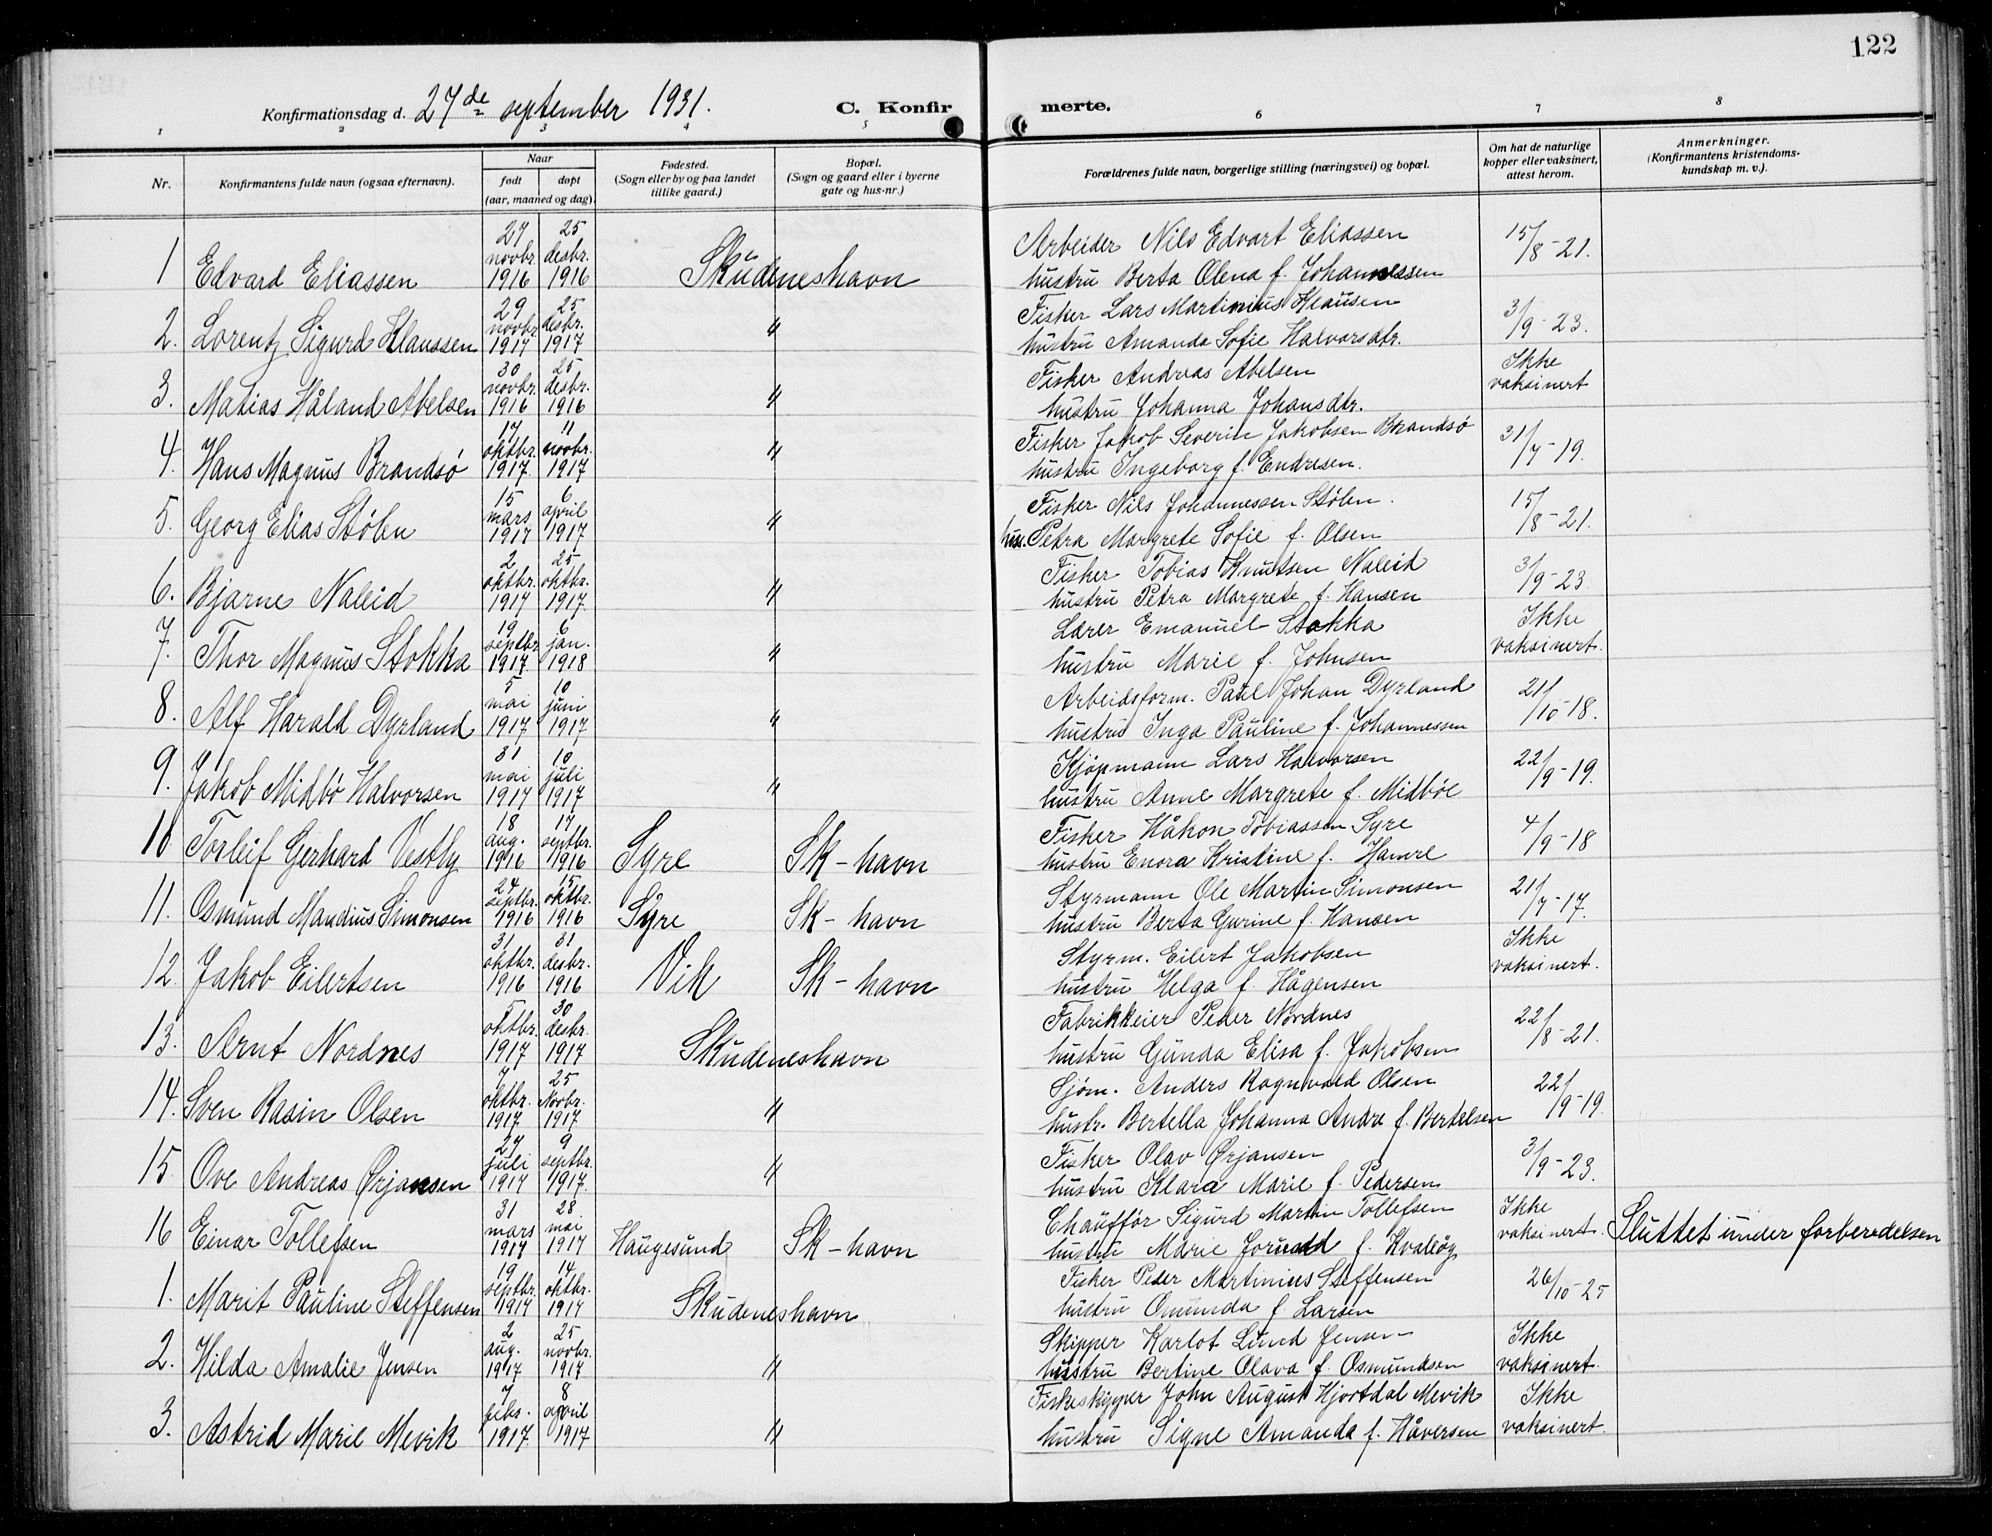 122
Konfirmationsdag d. 27de september 1931.
C. Konfir merte.
1 2 3 4 5 6 7 8
Nr.
Konfirmantens fulde navn (ogsaa efternavn).
Naar
født døpt
(aar, maaned og dag)
Fødested.
(Sogn eller by og paa landet
tillike gaard.)
Bopæl.
(Sogn og gaard eller i byerne
gate og hus-nr.)
Forældrenes fulde navn, borgerlige stilling (næringsvei) og bopæl.
Om hat de naturlige
kopper eller vaksinert,
attest herom.
Anmerkninger.
(Konfirmantens kristendoms-
kundskap m. v.).
1 Edvard Eliassen 27 novbr. 1916 25 desbr. 1916 Skudeneshavn
Arbeider Nils Edvart Eliassen
hustru Berta Olena f. Johannessen 15/8-21.
2. Lorentz Sigurd Klaussen 29 novbr. 1917 25 desbr. 1917 "
Fisker Lars Martinius Klausen
hustru Amanda Sofie Halvorsdtr. 3/9-23.
3. Matias Håland Abelsen 30 novbr. 1916 25 desbr. 1916 "
Fisker Andreas Abelsen
hustru Johanna Johansdtr. Ikke vaksinert
4. Hans Magnus Brandsø 17 oktbr. 1917. 11 novbr. 1917 "
Fisker Jakob Severin Jakobsen Brandsø
hustru Ingeborg f. Endresen. 31/7-19.
5. Georg Elias Stølen 15 mars 1917 6 april 1917 "
Fisker Nils Johannessen Stølen.
hus. Petra Margrete Sofie f. Olsen 15/8-21.
6. Bjarne Naleid 2 oktbr. 1917 25 oktbr. 1917. "
Fisker Tobias Knutsen Naleid
hustru Petra Margrete f. Hansen 3/9-23
7. Thor Magnus Stokka 19 septbr 1917 6 jan. 1918 "
Lærer Emanuel Stokka
hustru Marie f. Johnsen Ikke vaksinert.
8. Alf Harald Dyrland 5 mai 1917 10 juni 1917 "
Arbeidsform. Paul Johan Dyrland
hustru Inga Pauline f. Johannessen 21/10-18.
9. Jakob Midbø Halvorsen 31 mai 1917 10 juli 1917 "
Kjøpmann Lars Halvorsen
hustru Anne Margrete f. Midbøe 22/9-19.
10 Torleif Gerhard Vestby 18 aug. 1916 17 septbr. 1916 Syre Sk-havn
Fisker Håkon Tobiassen Syre
hustru Enora Kristine f. Hamre 4/9-18
11. Osmund Mandius Simonsen 24 septbr. 1916 15 oktbr. 1916 Syre Sk-havn
Styrmann Ole Martin Simonsen
hustru Berta Gurine f. Hansen 21/7-17.
12. Jakob Eilertsen 31 oktbr. 1916 31 desbr. 1916 Vik Sk-havn
Styrm. Eilert Jakobsen
hustru Helga f. Hågensen Ikke vaksinert.
13. Arnt Nordnes 5 oktbr. 1917 30 desbr. 1917 Skudeneshavn
Fabrikkeier Peder Nordnes
hustru Gunda Elisa f. Jakobsen 22/8-21.
14. Sven Rasin Olsen 7 oktbr. 1917 25 Novbr. 1917 "
Sjøm. Anders Ragnvald Olsen
hustr. Bertella Johanna Andre f. Bertelsen 22/9-19.
15. Ove Andreas Ørjansen 27 juli 1917 9 septbr. 1917. "
Fisker Olav Ørjansen
hustru Klara Marie f. Pedersen 3/9-23.
16 Einar Tollefsen 31 mars 1917 28 mai 1917 Haugesund Sk-havn
Chauffør Sigurd Martin Tollefsen
hustru Marie f. Kvaløy Ikke vaksinert. Sluttet under forberedelsen
1. Marit Pauline Steffensen 19 septbr. 1917 14 oktbr. 1917 Skudeneshavn
Fisker Peder Martinius Steffensen
hustru Omunda f. Larsen 26/10-25
2. Hilda Amalie Jensen 2 aug. 1917 25 novbr. 1917 "
Skipper Karlot Lund Jensen
hustru Bertine Olava f. Osmundsen Ikke vaksinert.
3. Astrid Marie Mevik 7 febr. 1917. 8 april 1917 "
Fiskeskipper John August Hjortdal Mevik
hustru Signe Amanda f. Håversen Ikke vaksinert.